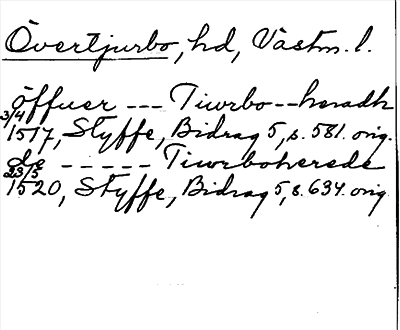 Övertjurbo, hd, Västm. l.
öffuer --- Tiwrbo--heradh
3/4 1517, Styffe, Bidrag 5, s. 581. orig.
de ------ Tiwrboherede
23/5 1520, Styffe, Bidrag 5, s. 634. orig